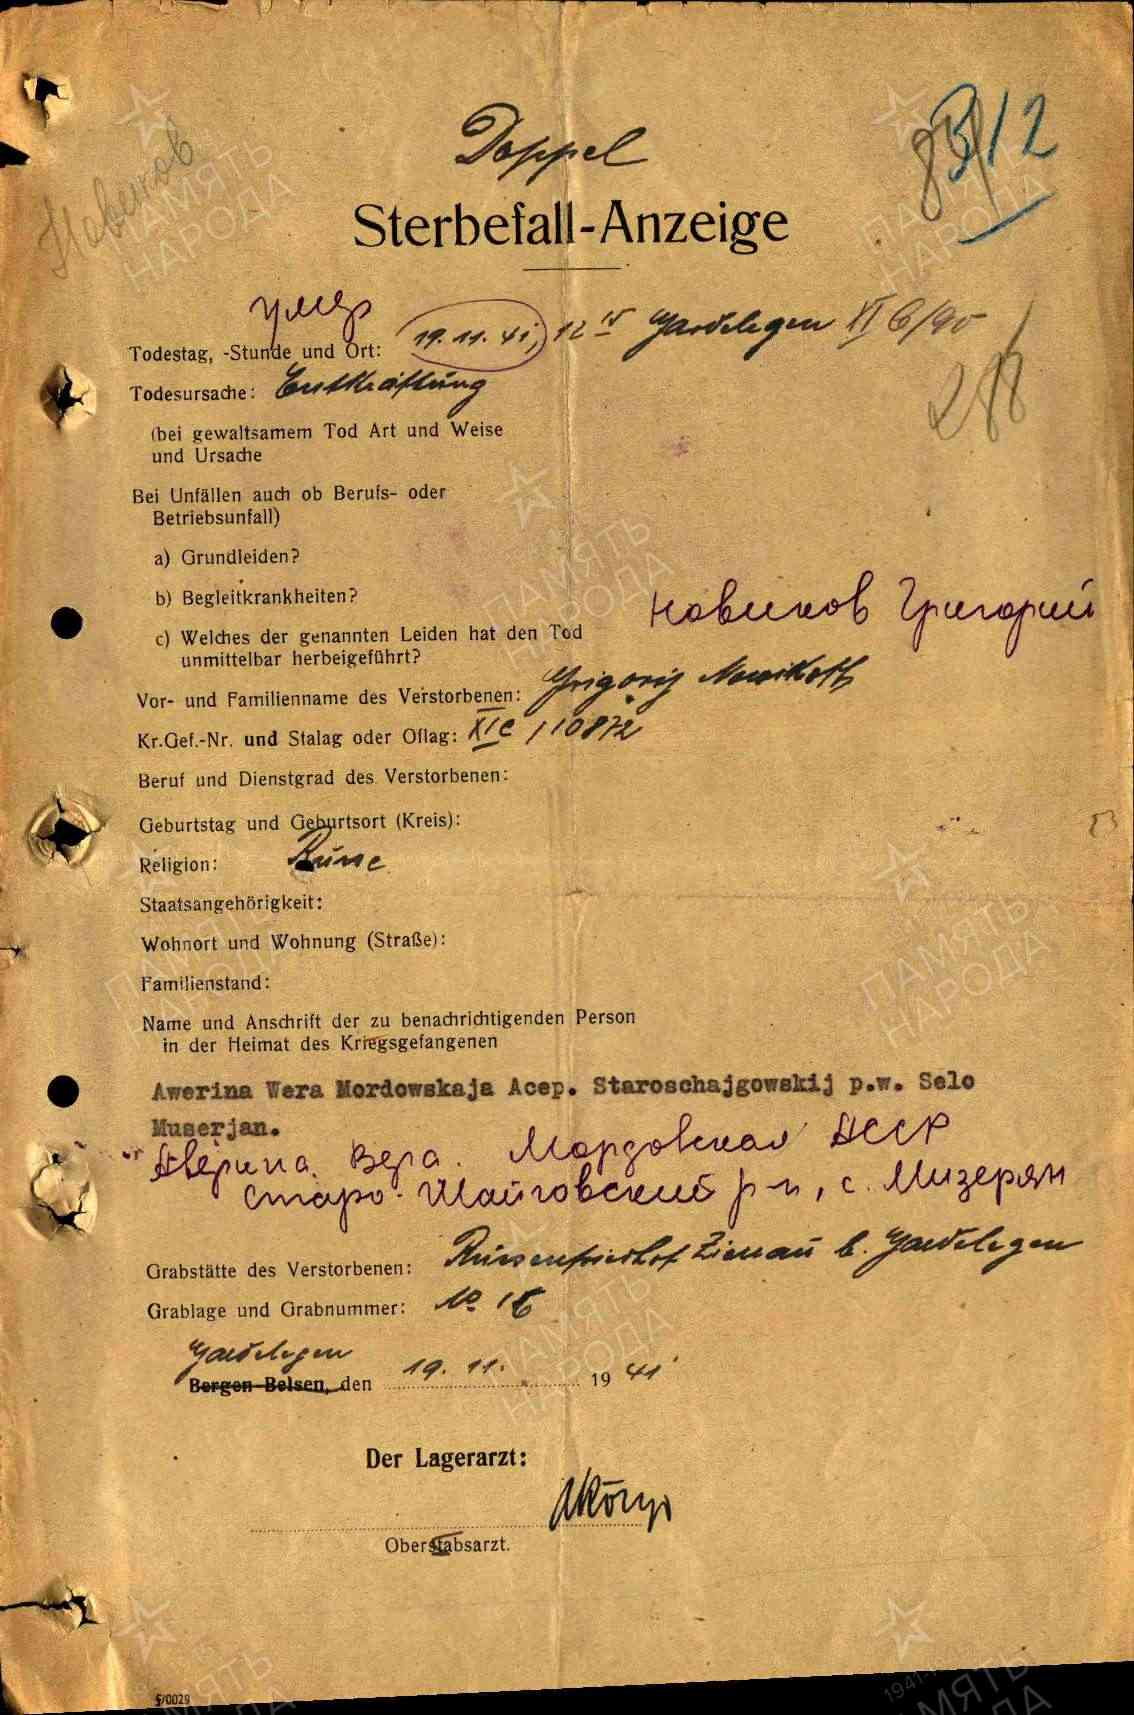 Новиков
Doppel
83/2
Sterbefall-Anzeige
умер
Todestag, -Stunde und Ort: 19.11.41, 12 Gardelegen XI
Todesursache: Entkräftung
288
(bei gewaltsamem Tod Art und Weise
und Ursache
Bei Unfällen auch ob Berufs- oder
Betriebsunfall)
a) Grundleiden?
b) Begleitkrankheiten?
Новиков Григорий
c) Welches der genannten Leiden hat den Tod
unmittelbar herbeigeführt?
Vor- und Familienname des Verstorbenen: Grigorij Nowikoff
Kr.Gef.-Nr. und Stalag oder Oflag: XI C / 10872
Beruf und Dienstgrad des Verstorbenen:
Geburtstag und Geburtsort (Kreis):
83
Religion: Russe
Staatsangehörigkeit:
Wohnort und Wohnung (Straße):
Familienstand:
Name und Anschrift der zu benachrichtigenden Person
in der Heimat des Kriegsgefangenen
Awerina Wera Mordowskaja Acep. Staroschajgowskij p.w. Selo
Muserjan.
Аверина Вера. Мордовская АССР
Старо-Шайговский р-н, с. Мизерян
Grabstätte des Verstorbenen: Russenfriedhof Zienau b. Gardelegen
Grablage und Grabnummer: No. 16
Gardelegen
Bergen-Belsen, den 19. 11. 1941
Der Lagerarzt:
Oberstabsarzt.
§/0029
ПАМЯТЬ
НАРОДА